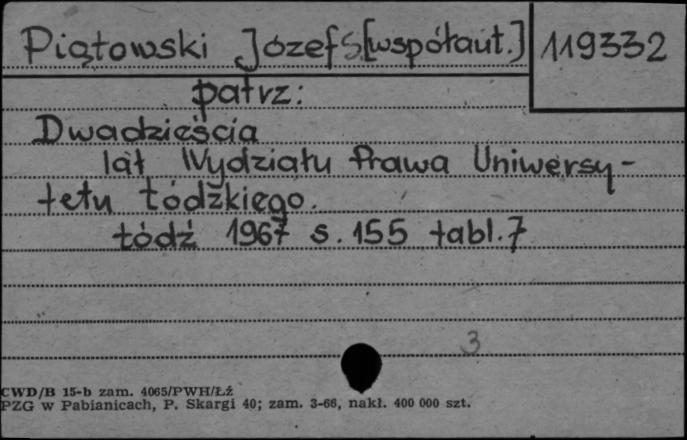 Piątowski Józef S. [współaut.] 119332
patrz:
Dwadzieścia
lat Wydziału Prawa Uniwersy-
tetu Łódzkiego.
Łódź 1967 s. 155 tabl. 7
3
CWD/B 15-b zam. 4065/PWH/Łź
PZG w Pabianicach, P. Skargi 40; zam. 3-66, nakł. 400 000 szt.